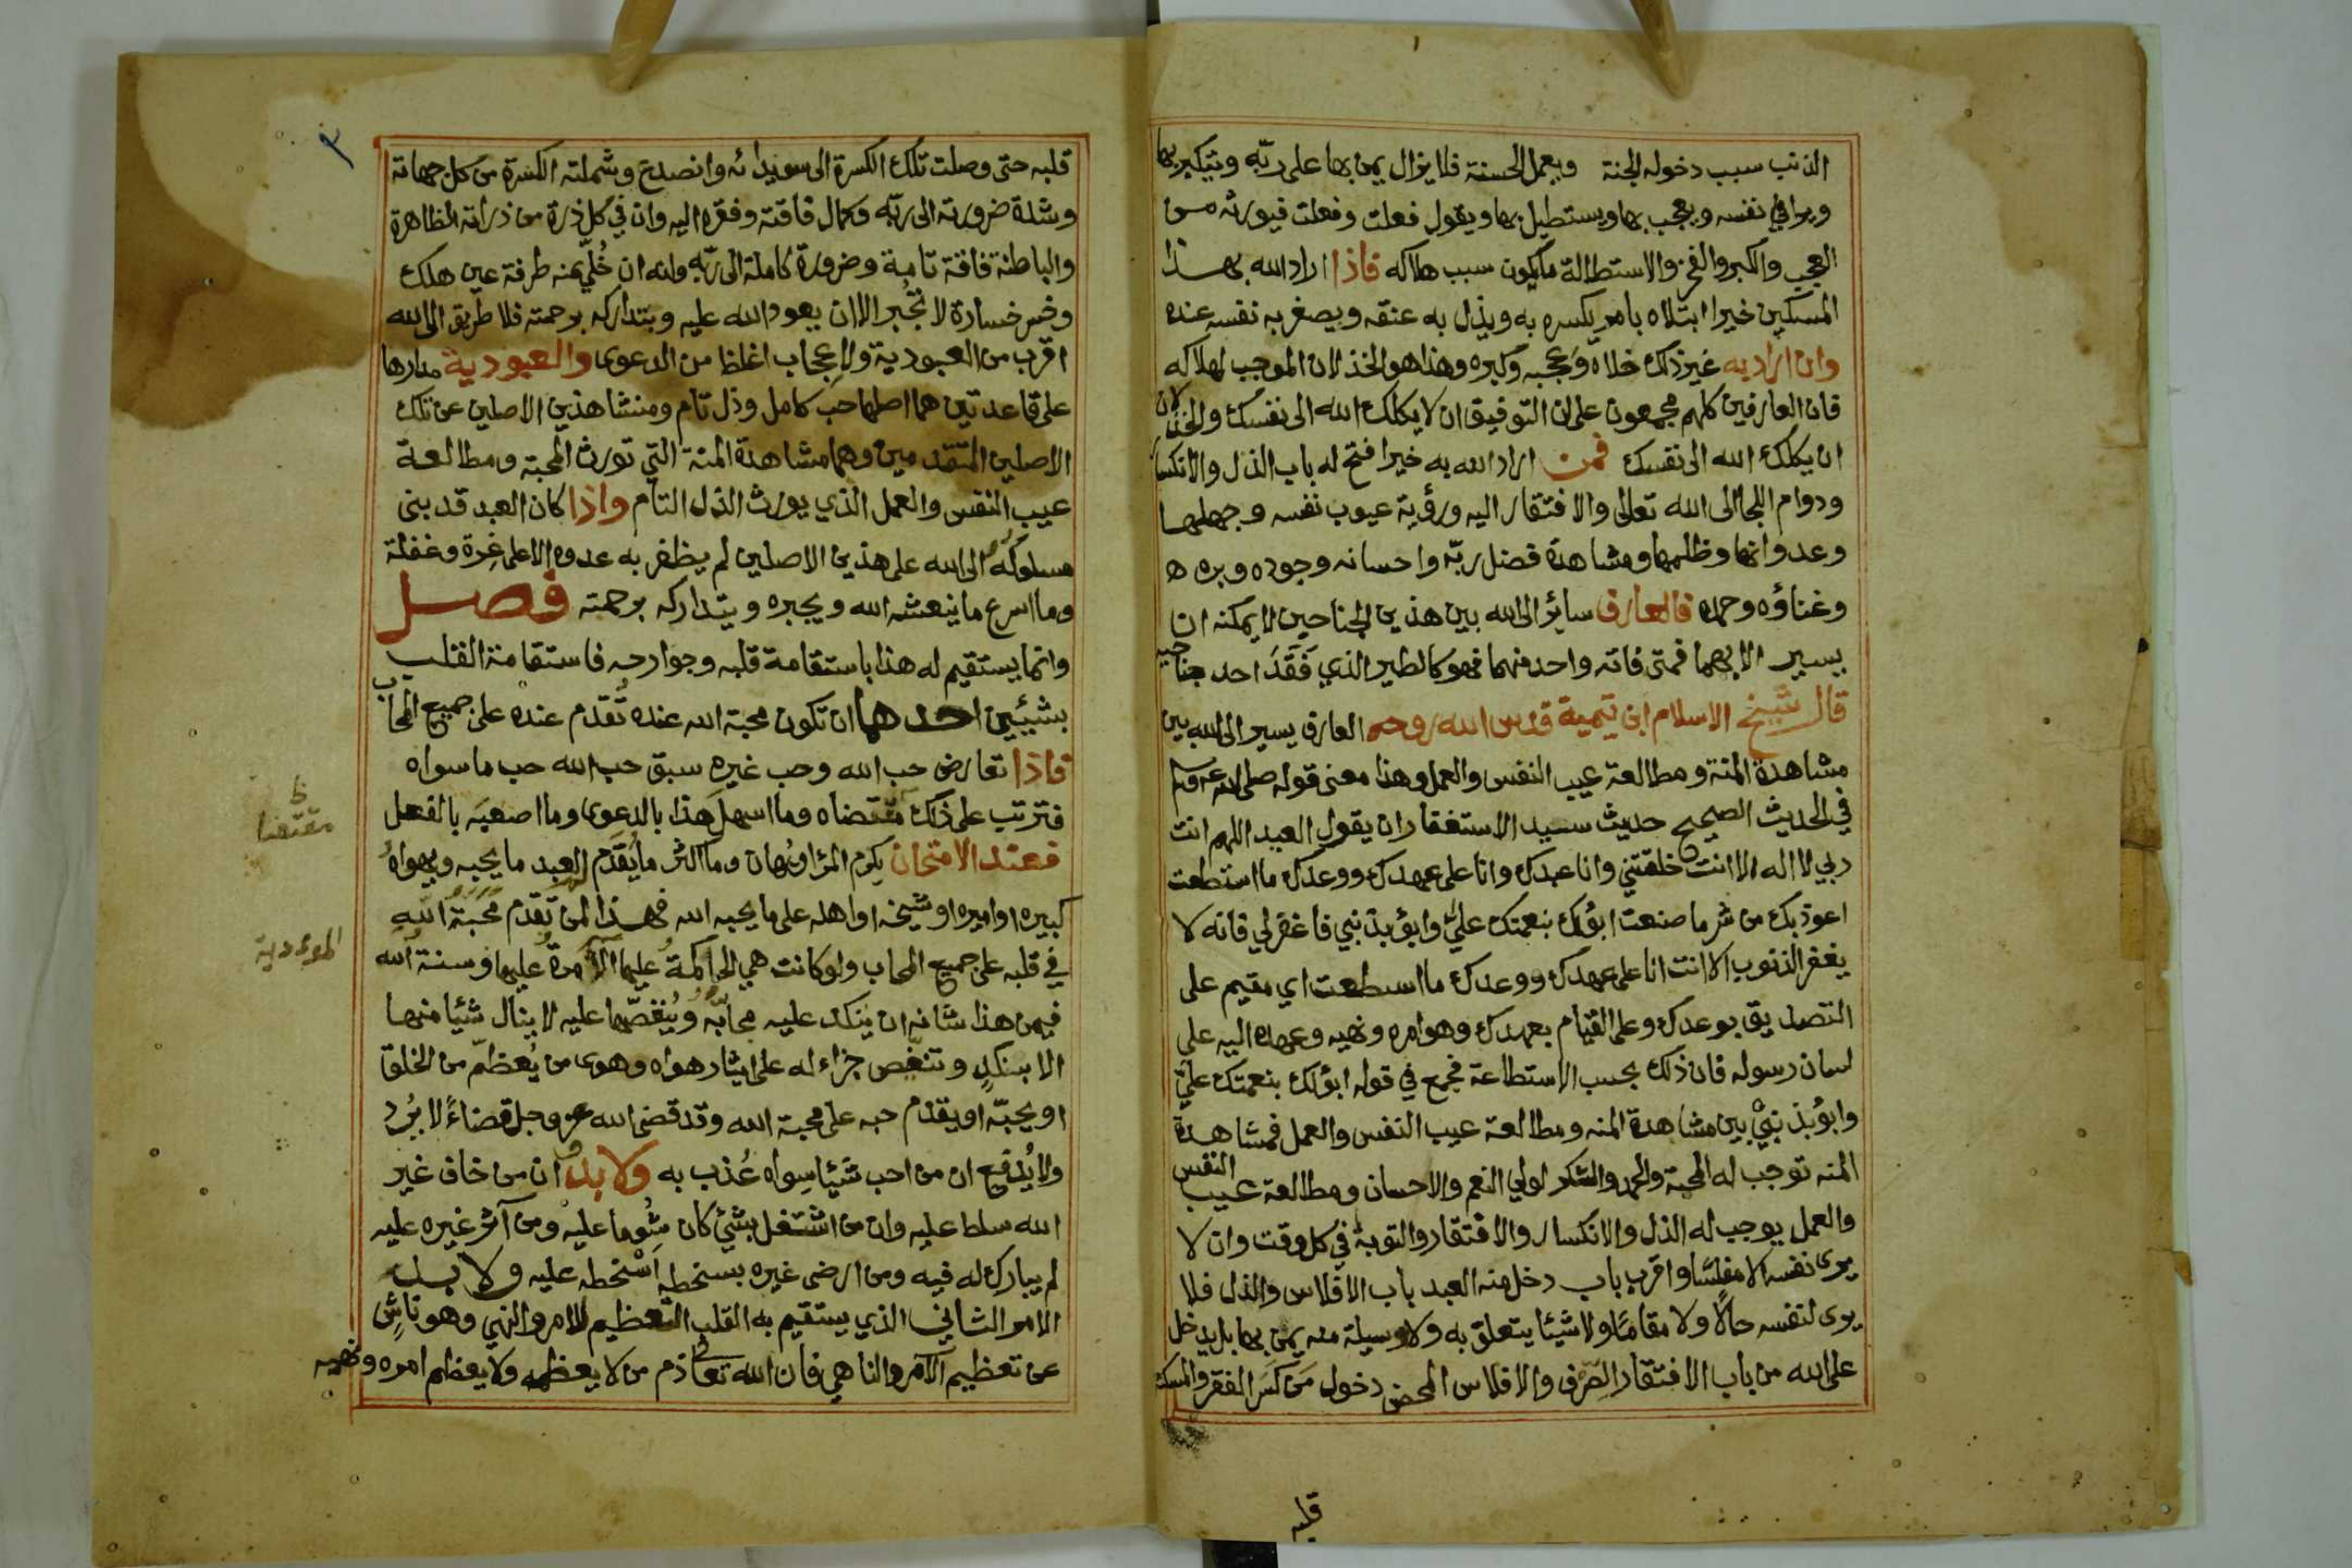 الذنب سبب دخوله الجنة ويعمل الحسنة فلا يزال يمن بها على ربّه ويتكبر بها
ويرا في نفسه ويعجب بها ويستطيل بها ويقول فعلت وفعلت فيورثه من
العجب والكبر والفخر والاستطالة ما يكون سبب هلاكه فاذا اراد الله بهذا
المسكين خيرا ابتلاه بامر يكسره به ويذل به عنقه ويصغر به نفسه عنده
وان اراد به غير ذلك خلاه وعجبه وكبره وهذا هو الخذلان الموجب لهلاكه
فان العارفين كلهم مجمعون على ان التوفيق ان لا يكلك الله الى نفسك والخذلان
ان يكلك الله الى نفسك فمن اراد الله به خيرا فتح له باب الذل والانكسار
ودوام اللجأ الى الله تعالى والافتقار اليه ورؤية عيوب نفسه وجهلها
وعدوانها وظلمها ومشاهدة فضل ربّه واحسانه وجوده وبره
وغناؤه وحمده فالعارف سائر الى الله بين هذين الجناحين لا يمكنه ان
يسير الا بهما فمتى فاته واحد منهما فهو كالطير الذي فَقَدَ احد جناحيه
قال شيخ الاسلام ابن تيمية قدس الله روحه العارف يسير الى الله بين
مشاهدة المنة ومطالعة عيب النفس والعمل وهذا معنى قوله صلى الله عليه وسلم
في الحديث الصحيح حديث سيد الاستغفار ان يقول العبد اللهم انت
ربي لا اله الا انت خلقتني وانا عبدك وانا على عهدك ووعدك ما استطعت
اعوذ بك من شر ما صنعت ابؤ لك بنعمتك عليّ وابؤ بذنبي فاغفر لي فانه لا
يغفر الذنوب الا انت انا على عهدك ووعدك ما استطعت اي مقيم على
التصديق بوعدك وعلى القيام بعهدك وهو امره ونهيه وعهده اليه على
لسان رسوله فان ذلك بحسب الاستطاعة فجمع في قوله ابؤ لك بنعمتك عليّ
وابؤ بذنبي بين مشاهدة المنه ومطالعة عيب النفس والعمل فمشاهدة
المنه توجب له المحبة والحمد والشكر لولي النعم والاحسان ومطالعة عيب النفس
والعمل يوجب له الذل والانكسار والافتقار والتوبة في كل وقت وان لا
يرى نفسه الا مفلسًا واقرب باب دخل منه العبد باب الافلاس والذل فلا
يرى لنفسه حالًا ولا مقامًا ولا شيئا يتعلق به ولا وسيلة منه يمن بها بل يدخل
على الله من باب الافتقار الصِّرف والافلاس المحض دخول من كسر الفقر والمسكنة
قلبه
٣
قلبه حتى وصلت تلك الكسرة الى سويدائه وانصدع وشملته الكسرة من كل جهاته
وشدة ضرورته الى ربّه وكمال فاقته وفقره اليه وان في كل ذرة من ذراته الظاهرة
والباطنة فاقة تامة وضرورة كاملة الى ربّه وانه ان خُلّي منه طرفة عين هلك
وخسر خسارة لا تجُبر الا ان يعود الله عليه ويتداركه برحمته فلا طريق الى الله
اقرب من العبودية ولا حجاب اغلظ من الدعوى والعبودية مدارها
على قاعدتين هما اصلها حب كامل وذل تام ومنشا هذين الاصلين عن تلك
الاصلين المتقدمين وهما مشاهدة المنة التي تورث المحبة ومطالعة
عيب النفس والعمل الذي يورث الذل التام واذا كان العبد قد بنى
سلوكه الى الله على هذين الاصلين لم يظفر به عدوه الا على غِرة وغفلة
وما اسرع ما ينعشه الله ويجبره ويتداركه برحمته فصل
وانما يستقيم له هذا باستقامة قلبه وجوارحه فاستقامة القلب
بشيئين احدهما ان تكون محبة الله عنده تُقدم عنده على جميع المحاب
فاذا تعارض حب الله وحب غيره سبق حب الله حب ما سواه
فترتب على ذلك مقتضاه وما اسهلَ هذا بالدعوى وما اصعبَه بالفعل
فعند الامتحان يكرم المرؤ او يُهان وما اكثر ما يُقدَم العبد ما يحبه ويهواهُ
كبيره او اميره او شيخه او اهله على ما يحبه الله فهذا لمن تقدم محبةُ اللهِ
في قلبه على جميع المحاب ولو كانت هي الحاكمةُ عليها الآمرةُ عليها وسنة الله
فيمن هذا شانه ان ينكد عليه محابّه ويُنغصّها عليه لا ينال شيئا منها
الا بنكدٍ وتنغّيص جزاء له على ايثار هواه وهوى من يُعظمّ من الخلق
او يحبّه او يقدم حبه على محبة الله وقد قضى الله عز وجل قضاءً لا يُرد
ولا يُدفع ان من احب شيئا سِواه عُذب به ولا بدُ ان من خاف غير
الله سلط عليه وان من اشتغل بشئ كان شُوما عليه ومن آثر غيره عليه
لم يبارك له فيه ومن ارضى غيره بسخطه اَسْخطه عليه ولا بد
الامر الثاني الذي يستقيم به القلب التعظيم للامر والنهي وهو ناشٍ
عن تعظيم الآمر والناهي فان الله تعالى ذم من لا يعظمه ولا يعظم امره ونهيه
ظ
مقتضا